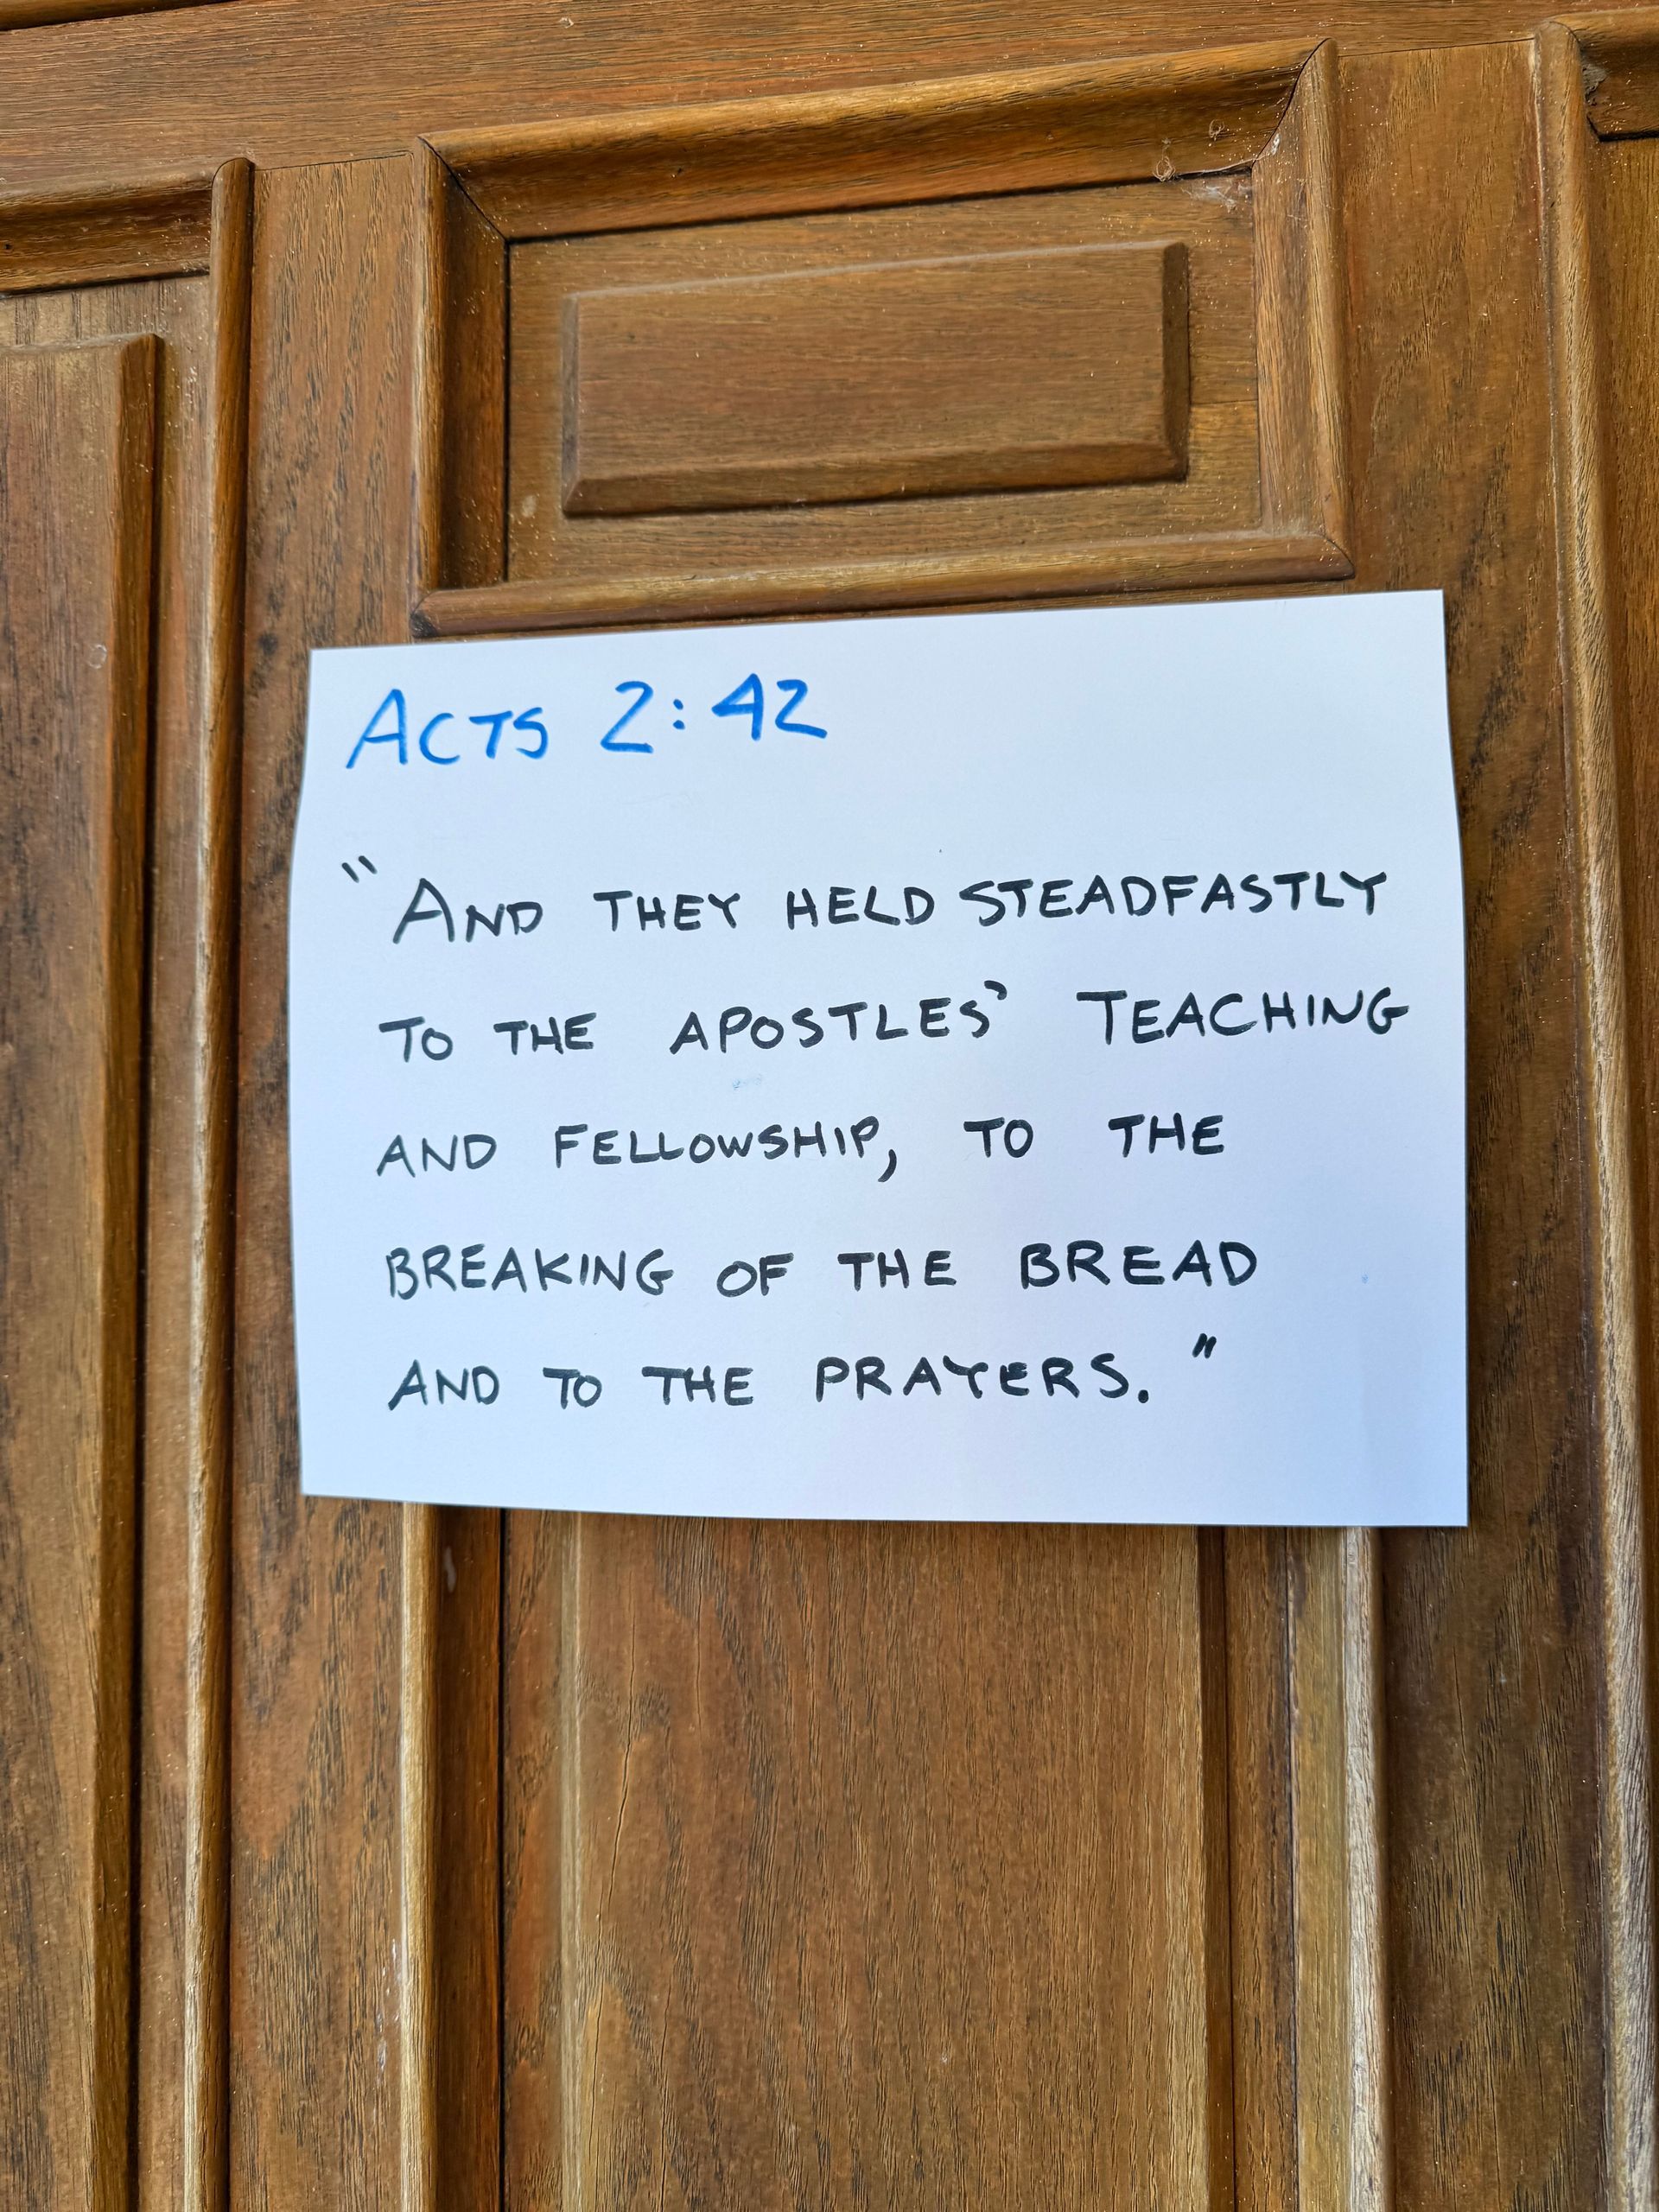 ACTS 2:42
"AND THEY HELD STEADFASTLY
TO THE APOSTLES' TEACHING
AND FELLOWSHIP, TO THE
BREAKING OF THE BREAD
AND TO THE PRAYERS."